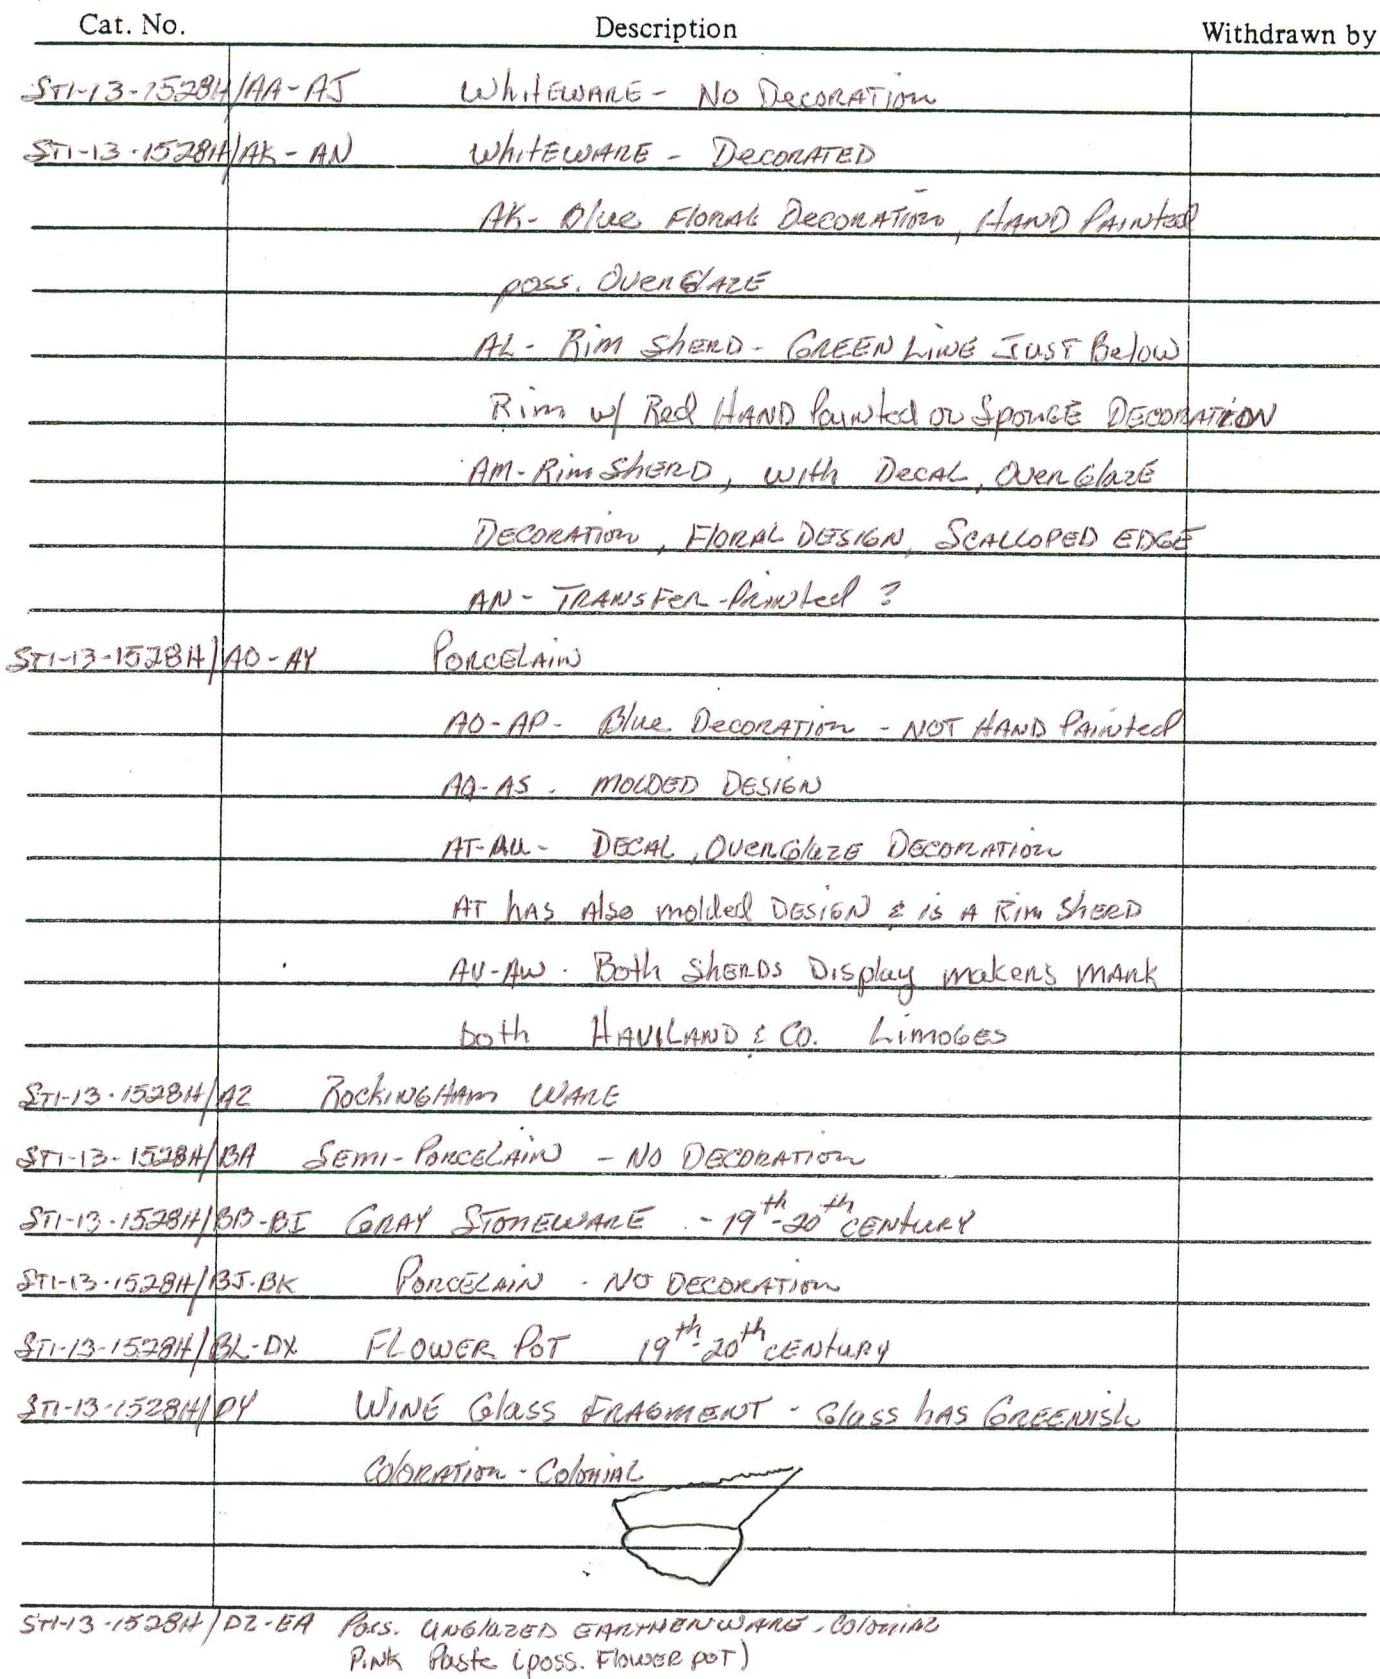 Cat. No. Description Withdrawn by
ST1-13-1528H/AA-AJ WhitEWARE - No DecoRATION
ST1-13-1528H/AK-AN WhitEWARE - DecoRATED
AK- Blue FloRAL DecoRATION, HAND PAiNted
poss. OvenGlAZE
AL- Rim SHERD- GREEN LiNE JUST Below
Rim w/ Red HAND PaiNted or SPONGE DECORATION
AM-Rim SHERD, with DECAL, OverGlaZE
DECORATION, FlORAL DESIGN, SCALLOPED EDGE
AN- TRANSFER-PRiNted ?
ST1-13-1528H/AO-AY PORCELAiN
AO-AP- Blue DecoRATION - NOT HAND PAiNted
AQ-AS. MOLDED DESIGN
AT-AU- DECAL, OverGlaZE DECORATION
AT hAS Also molded DESIGN & is A Rim SHERD
AV-AW. Both SHERDS Display makers MARK
both HAVILAND & CO. LiMOGES
ST1-13-1528H/AZ ROCKiNGHAM WARE
ST1-13-1528H/BA SEMI-PORCELAIN - NO DECORATION
ST1-13-1528H/BB-BI GRAY STONEWARE - 19th-20th CENTURY
ST1-13-1528H/BJ-BK PORCELAIN - NO DECORATION
ST1-13-1528H/BL-DX FLOWER POT 19th-20th CENTURY
ST1-13-1528H/DY WINE Glass FRAGMENT - Glass hAS GREENish
COloRATION - COloNiAL
ST1-13-1528H/DZ-EA Poss. UNGlAZED EARTHENWARE - COlONIAL
PiNK Paste (poss. FlOWER POT)